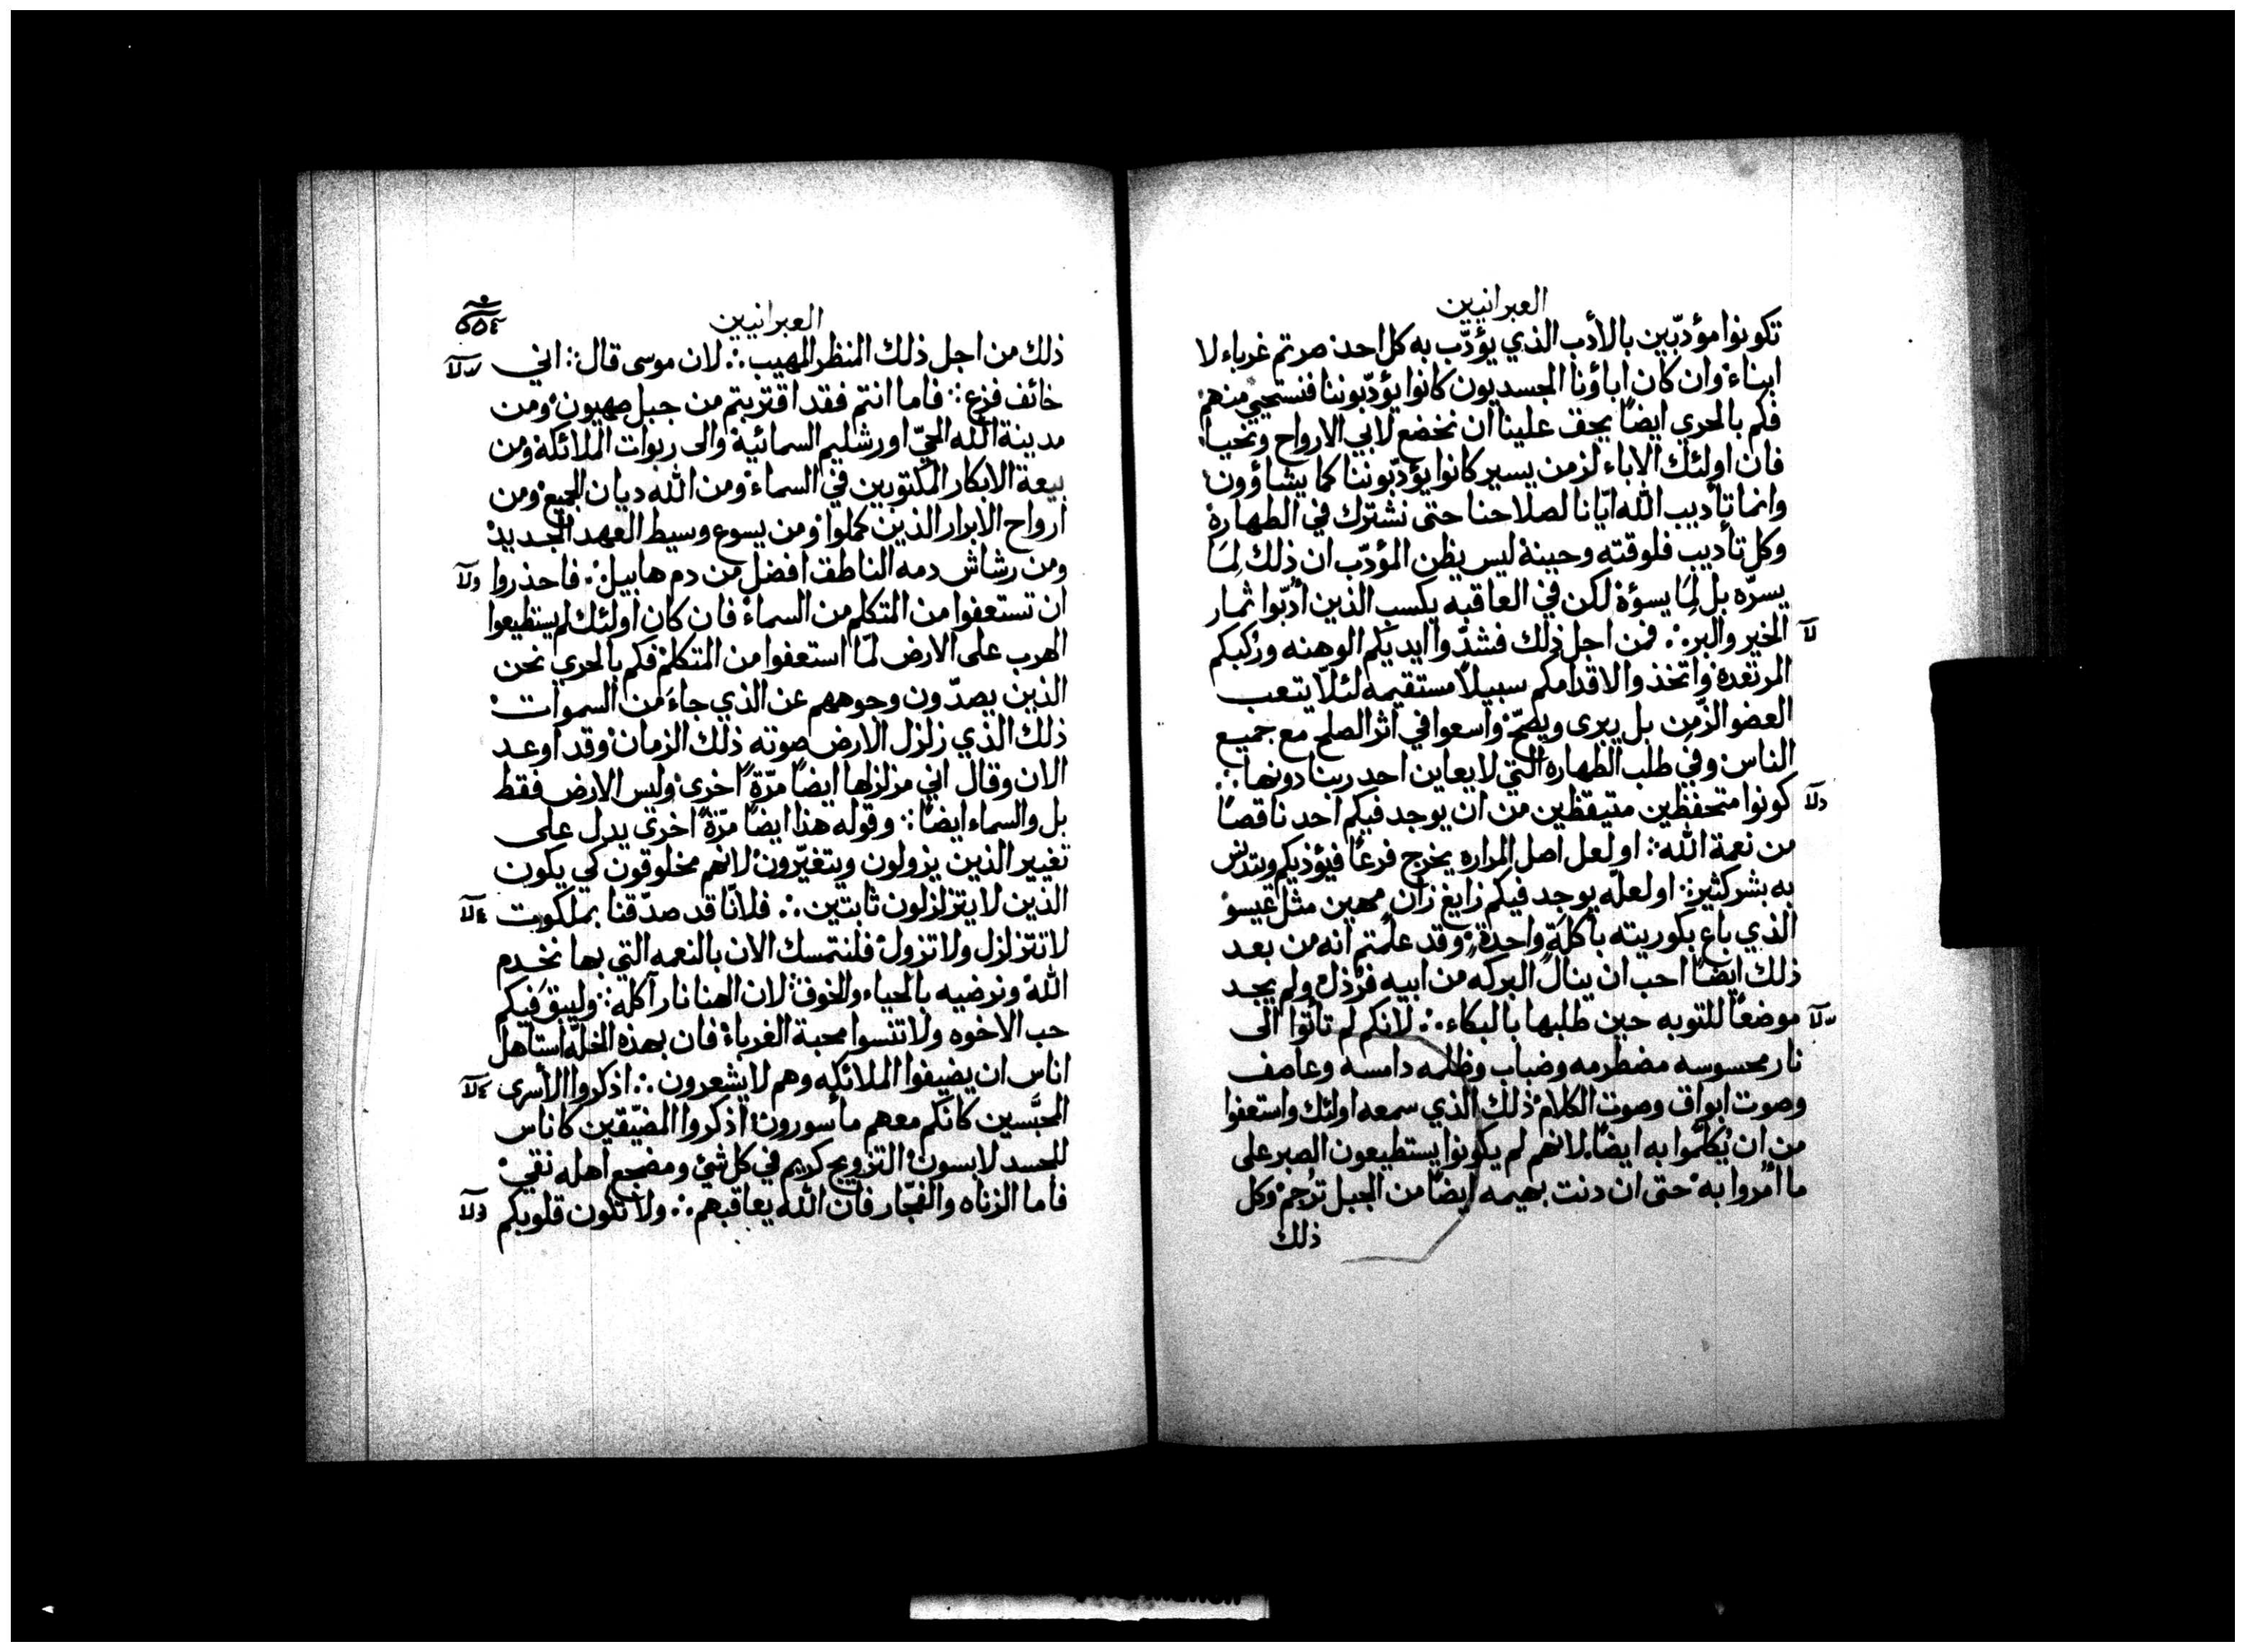 العبرانيين
تكونوا مؤدّبين بالأدب الذي يؤدّب به كل احد صرتم غرباء لا
ابناء وان كان اباؤنا الجسديون كانوا يؤدّبوننا فنستحيي منهم
فكم بالحري ايضًا يحق علينا ان نخضع لابي الارواح ونحيا
فان اولئك الاباء لزمن يسير كانوا يؤدّبوننا كما يشاؤون
وانما تأديب الله ايّانا لصلاحنا حتى نشترك في الطهارة
وكل تأديب فلوقته وحينه ليس يظن المؤدّب ان ذلك لِمَا
يسرّه بل لِمَا يسؤه لكن في العاقبه يكسب الذين أدّبوا ثمار
الخير والبر ∴ فمن اجل ذلك فشدّوا ايديكم الوهنه وركبكم
المرتعده واتخذوا لاقدامكم سبيلاً مستقيمه لئلّا يتعب
العضو الزّمِن بل يبرى ويصحّ واسعوا في اثر الصلح مع جميع
الناس وفي طلب الطهاره التي لا يعاين احد ربنا دونها ∴
كونوا متحفظين متيقظين من ان يوجد فيكم احد ناقصًا
من نعمة الله ∴ او لعل اصل المراره يخرج فرعًا فيؤذيكم ويتدنس
به بشر كثير ∴ او لعلّه يوجد فيكم زايغ زانٍ مهين مثل عيسو
الذي باع بكوريته بأكلةٍ واحدةٍ وقد علمتم انه من بعد
ذلك ايضًا احب ان ينال البركه من ابيه فرُذل ولم يجد
موضعًا للتوبه حين طلبها بالبكاء ∴ لانكم لم تأتوا الى
نار محسوسه مضطرمه وضباب وظلمه دامسه وعاصف
وصوت ابواق وصوت الكلام ذلك الذي سمعه اولئك واستعفوا
من ان يُكلَّموا به ايضًا لانهم لم يكونوا يستطيعون الصبر على
ما أمروا به حتى ان دنت بهيمه ايضًا من الجبل تُرجم وكل
ذلك
العبرانيين
ذلك من اجل ذلك المنظر المهيب ∴ لان موسى قال ∴ اني
خائف فزع ∴ فاما انتم فقد اقتربتم من جبل صهيون ومن
مدينة الله الحيّ اورشليم السمائية والى ربوات الملائكة ومن
بيعة الابكار المكتوبين في السماء ومن الله ديان الجميع ومن
ارواح الابرار الذين كملوا ومن يسوع وسيط العهد الجديد
ومن رشاش دمه الناطق افضل من دم هابيل ∴ فاحذروا
ان تستعفوا من المتكلم من السماء فان كان اولئك لم يستطيعوا
الهرب على الارض لمّا استعفوا من المتكلم فكم بالحري نحن
الذين يصدّون وجوههم عن الذي جاء من السموات
ذلك الذي زلزل الارض صوته ذلك الزمان وقد اوعد
الان وقال اني مزلزلها ايضًا مرّةً اخرى وليس الارض فقط
بل والسماء ايضًا ∴ وقوله هذا ايضًا مرّةً اخرى يدل على
تغيير الذين يزولون ويتغيّرون لانهم مخلوقون كي يكون
الذين لا يتزلزلون ثابتين ∴ فلانّا قد صدّقنا بملكوت
لا تتزلزل ولا تزول فلنتمسك الان بالنعمه التي بها نخدم
الله ونرضيه بالحياء والخوف ∴ لان الهنا نار آكله ∴ وليبق فيكم
حب الاخوه ولا تنسوا محبة الغرباء فان بهذه الخلّه استاهل
اناس ان يضيفوا الملائكه وهم لا يشعرون ∴ اذكروا الأسرى
المحبّسين كانكم معهم مأسورون اذكروا المضيّقين كاناس
للجسد لابسون التزويج كريم في كل شئ ومضجع اهله نقي
فاما الزناه والفجّار فان الله يعاقبهم ∴ ولا تكون قلوبكم